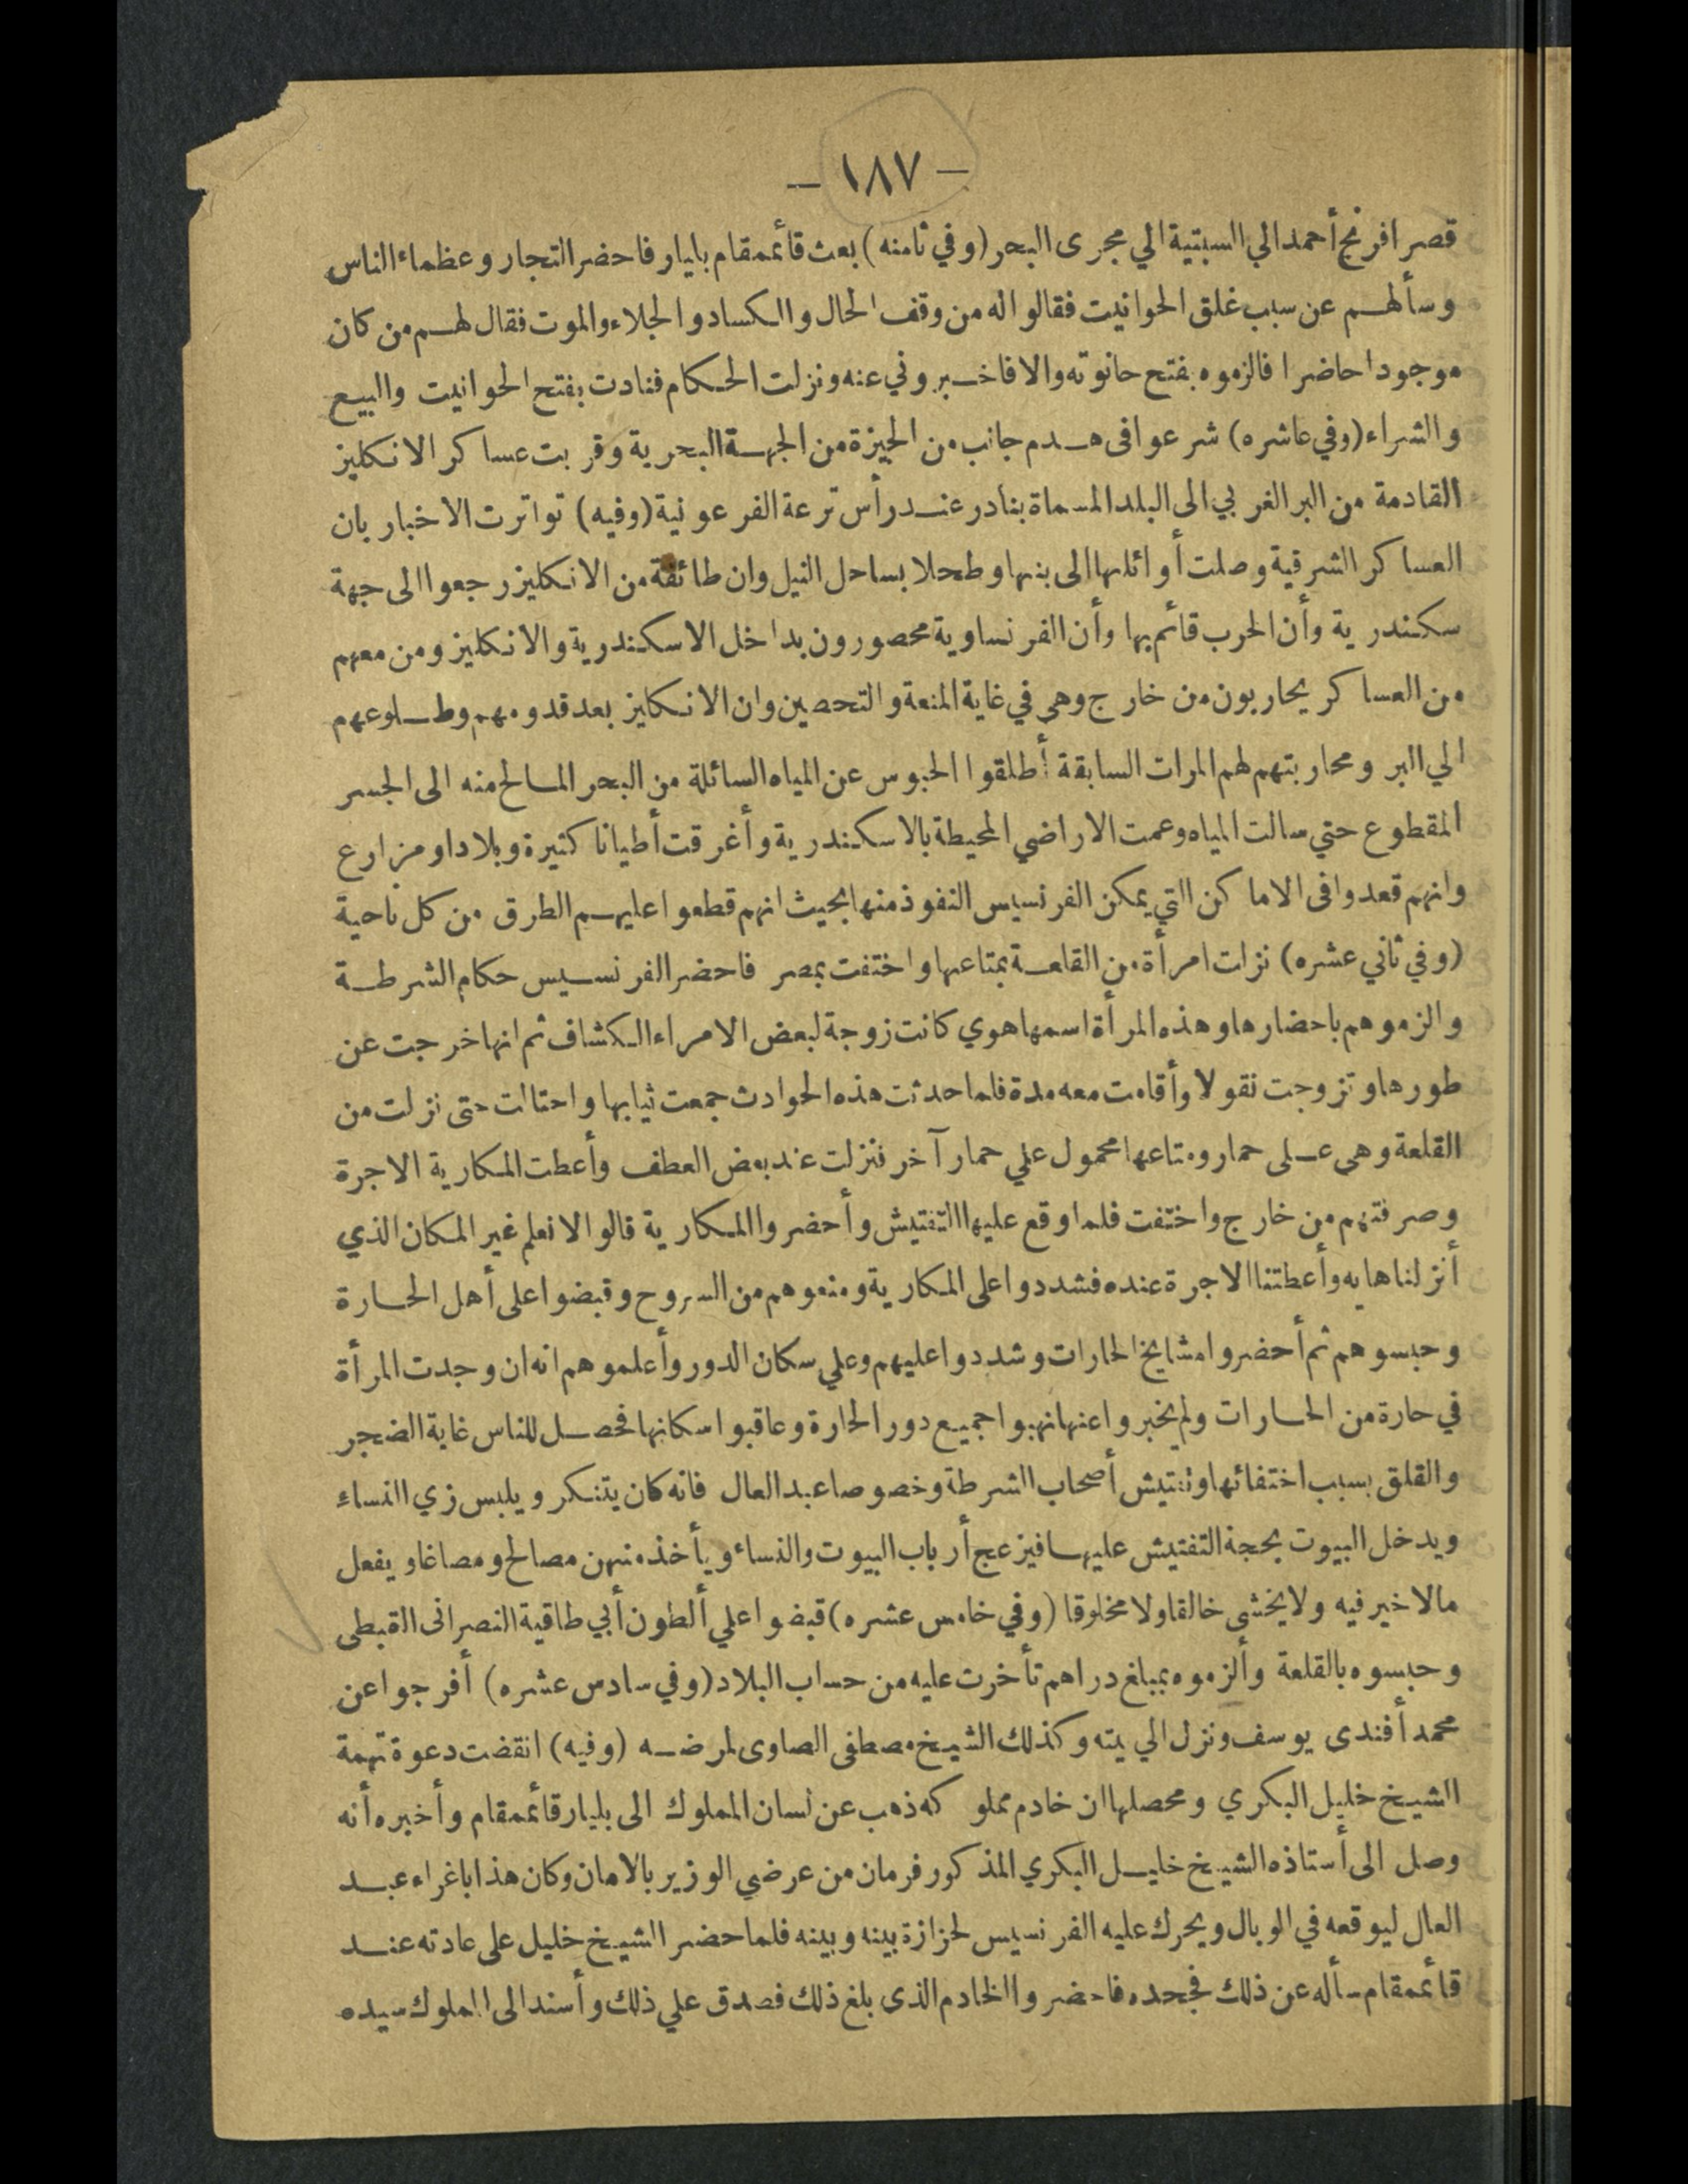 — ١٨٧ —
قصر افرنج أحمد الي السبتية الي مجرى البحر (وفي ثامنه) بعث قائممقام بايار فاحضر التجار وعظماء الناس
وسألهم عن سبب غلق الحوانيت فقالوا له من وقف الحال والكساد والجلاء والموت فقال لهم من كان
موجودا حاضرا فالزموه بفتح حانوته والا فاخبروني عنه ونزلت الحكام فنادت بفتح الحوانيت والبيع
والشراء (وفي عاشره) شرعوا فى هدم جانب من الجيزة من الجهة البحرية وقربت عساكر الانكليز
القادمة من البر الغربي الى البلد المسماة بنادر عند رأس ترعة الفرعونية (وفيه) تواترت الاخبار بان
العساكر الشرقية وصلت أوائلها الى بنها وطحلا بساحل النيل وان طائفة من الانكليز رجعوا الى جهة
سكندرية وأن الحرب قائم بها وأن الفرنساوية محصورون بداخل الاسكندرية والانكليز ومن معهم
من العساكر يحاربون من خارج وهى في غاية المنعة والتحصين وان الانكليز بعد قدومهم وطلوعهم
الي البر ومحاربتهم لهم المرات السابقة أطلقوا الحبوس عن المياه السائلة من البحر المالح منه الى الجسر
المقطوع حتي سالت المياه وعمت الاراضي المحيطة بالاسكندرية وأغرقت أطيانا كثيرة وبلادا ومزارع
وانهم قعدوا فى الاماكن التي يمكن الفرنسيس النفوذ منها بحيث انهم قطعوا عليهم الطرق من كل ناحية
(وفي ثاني عشره) نزلت امرأة من القلعة بمتاعها واختفت بمصر فاحضر الفرنسيس حكام الشرطة
والزموهم باحضارها وهذه المرأة اسمها هوي كانت زوجة لبعض الامراء الكشاف ثم انها خرجت عن
طورها وتزوجت نقولا وأقامت معه مدة فلما حدثت هذه الحوادث جمعت ثيابها واحتالت حتى نزلت من
القلعة وهى على حمار ومتاعها محمول علي حمار آخر فنزلت عند بعض العطف وأعطت المكارية الاجرة
وصرفتهم من خارج واختفت فلما وقع عليها التفتيش وأحضروا المكارية قالوا لا نعلم غير المكان الذي
أنزلناها به وأعطتنا الاجرة عنده فشددوا على المكارية ومنعوهم من السروح وقبضوا على أهل الحارة
وحبسوهم ثم أحضروا مشايخ الحارات وشددوا عليهم وعلي سكان الدور وأعلموهم انه ان وجدت المرأة
في حارة من الحارات ولم يخبروا عنها نهبوا جميع دور الحارة وعاقبوا سكانها فحصل للناس غاية الضجر
والقلق بسبب اختفائها وتفتيش أصحاب الشرطة وخصوصا عبد العال فانه كان يتنكر ويلبس زي النساء
ويدخل البيوت بحجة التفتيش عليها فيزعج أرباب البيوت والنساء ويأخذ منهن مصالح ومصاغا ويفعل
مالا خير فيه ولا يخشى خالقا ولا مخلوقا (وفي خامس عشره) قبضوا علي ألطون أبي طاقية النصرانى القبطى
وحبسوه بالقلعة وألزموه بمبلغ دراهم تأخرت عليه من حساب البلاد (وفي سادس عشره) أفرجوا عن
محمد أفندى يوسف ونزل الي بيته وكذلك الشيخ مصطفى الصاوى لمرضه (وفيه) انقضت دعوة تهمة
الشيخ خليل البكري ومحصلها ان خادم مملوكه ذهب عن لسان المملوك الى بليار قائممقام وأخبره أنه
وصل الى أستاذه الشيخ خليل البكري المذكور فرمان من عرضي الوزير بالامان وكان هذا باغراء عبد
العال ليوقعه في الوبال ويحرك عليه الفرنسيس لحزازة بينه وبينه فلما حضر الشيخ خليل على عادته عند
قائممقام سأله عن ذلك فجحده فاحضروا الخادم الذى بلغ ذلك فصدق علي ذلك وأسند الى المملوك سيده